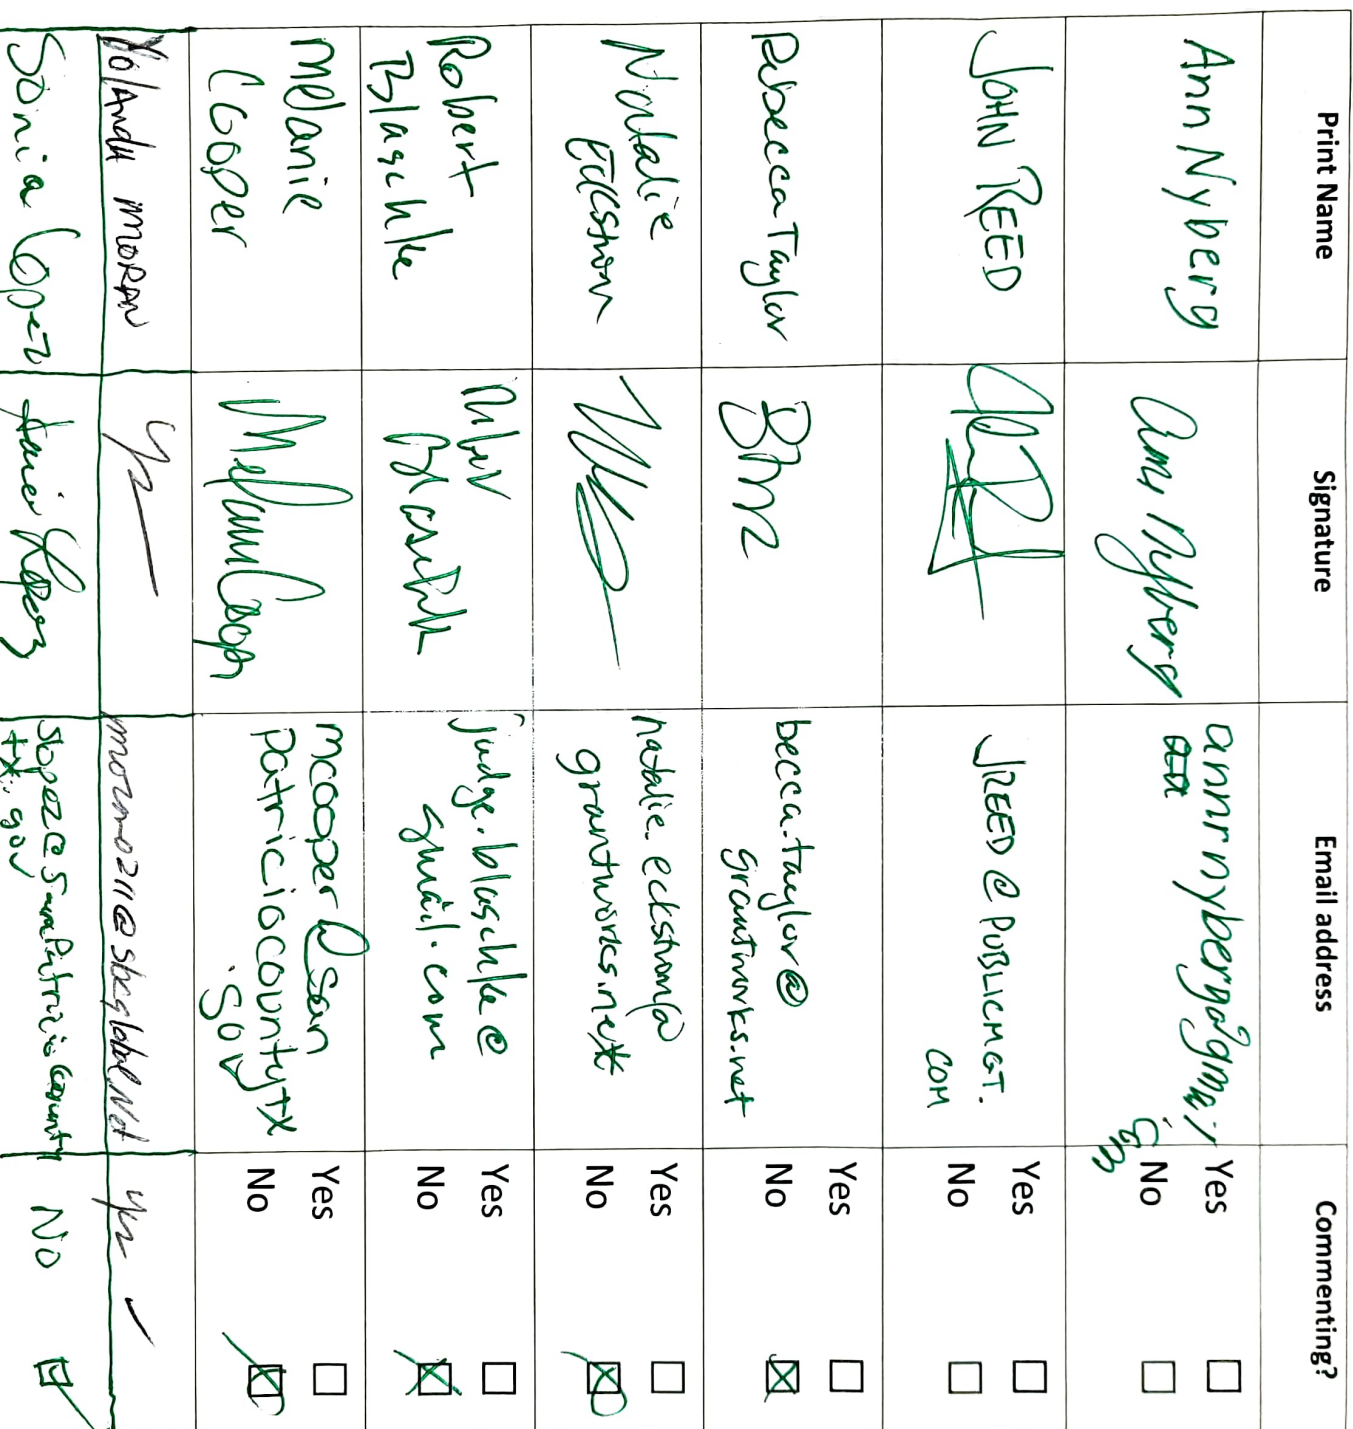 Print Name
Signature
Email address
Commenting?
Ann Nyberg
Ann Nyberg
annrnyberg2@gmail
com
Yes
No
JOHN REED
JREED @ PUBLICMGT.
COM
Yes
No
Rebecca Taylor
becca.taylor@
grantworks.net
Yes
No
Natalie
Eckstrom
natalie.eckstrom@
grantworks.net
Yes
No
Robert
Blaschke
Robert
Blaschke
judge.blaschke@
gmail.com
Yes
No
Melanie
Cooper
Melanie Cooper
mcooper@san
patriciocountytx
.gov
Yes
No
Yolanda MORAN
@sbcglobal.net
Sonia Lopez
Sonia Lopez
slopez@sanpatriciocounty
tx.gov
No